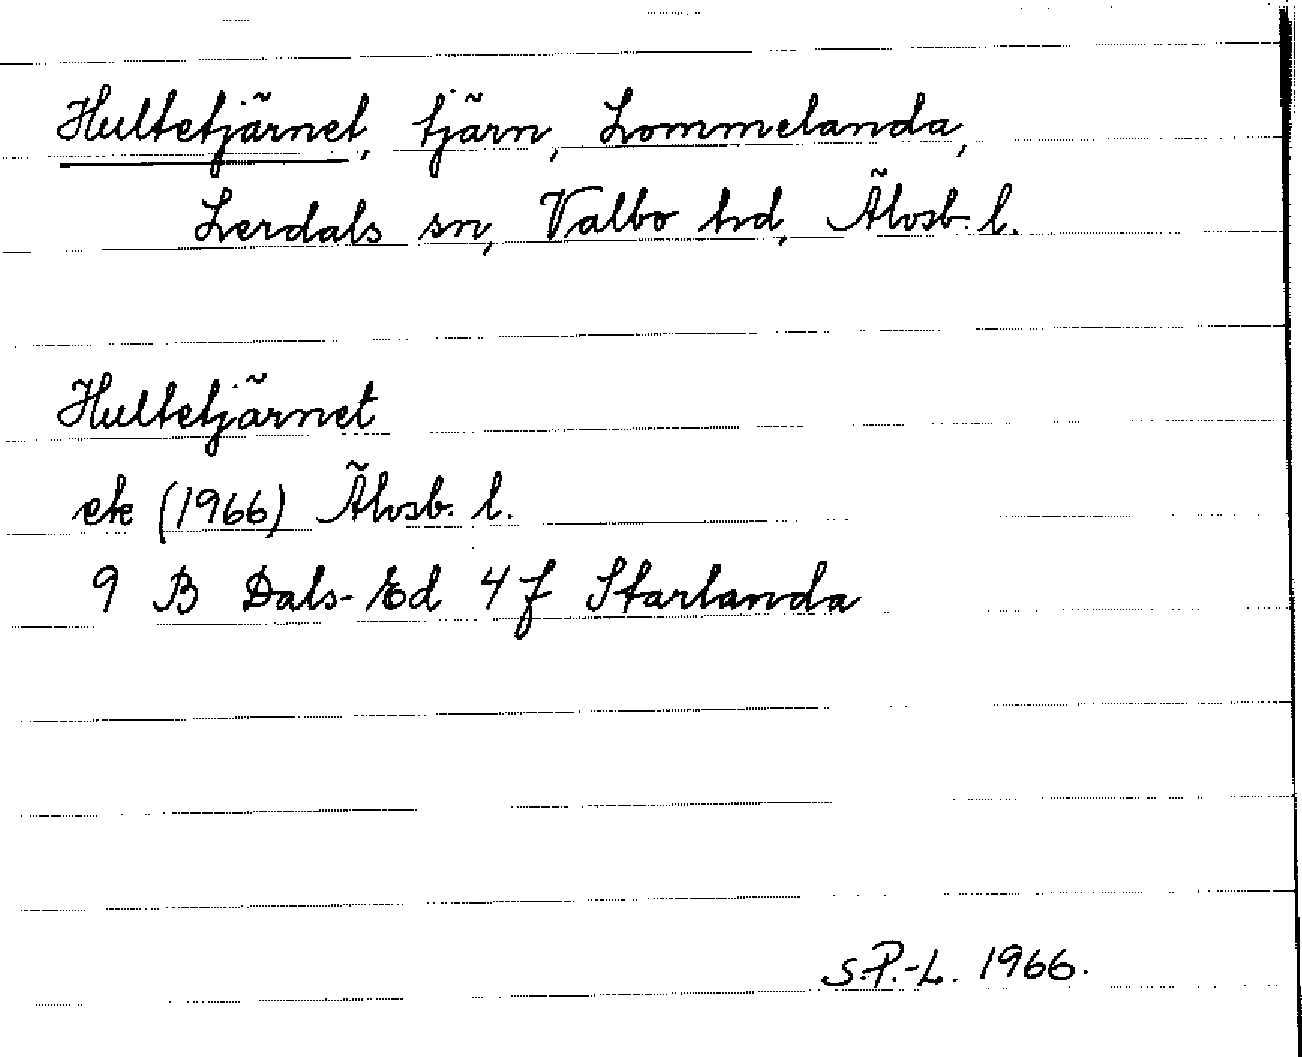 Hultetjärnet, tjärn, Lommelanda,
Lerdals sn, Valbo hd, Älvsb. l.
Hultetjärnet
ek (1966) Älvsb. l.
9 B Dals-Ed 4 f Starlanda
S.P.-L. 1966.